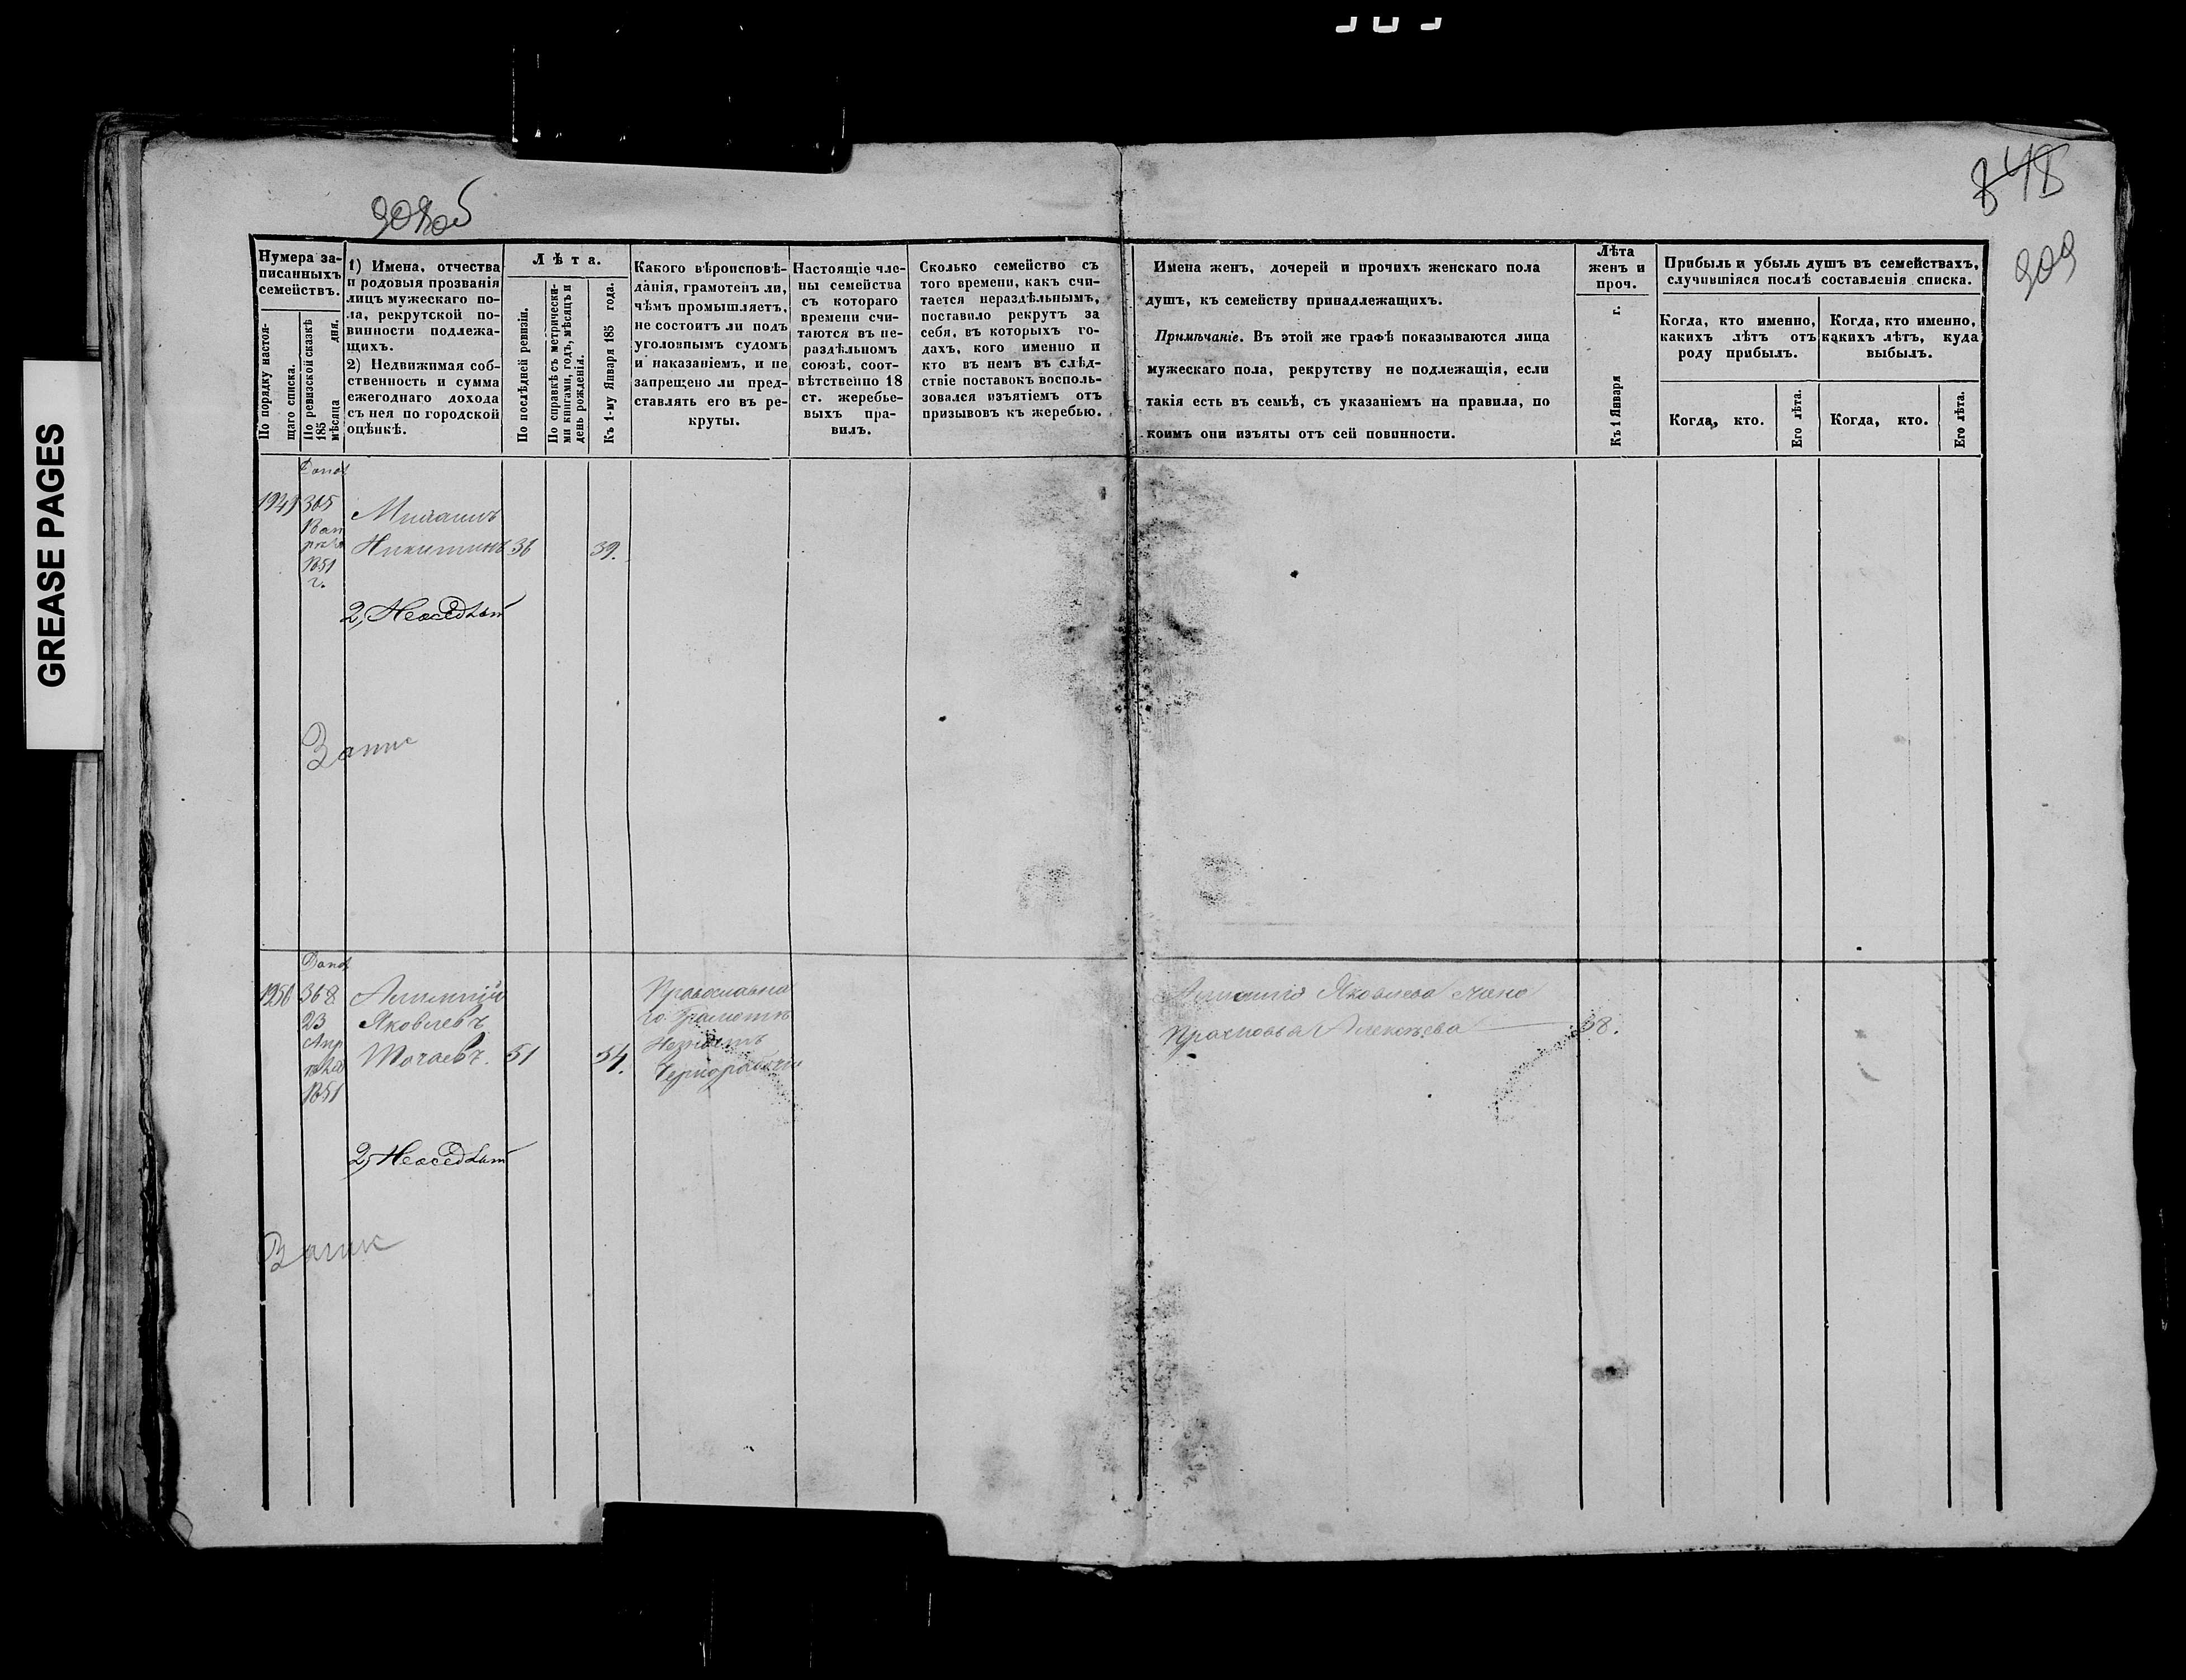 GREASE PAGES
848
909
908об
Нумера за-
писанныхъ
семействъ.
По порядку настоя-
щаго списка.
По ревизской сказкѣ
185 дня.
мѣсяца
1) Имена, отчества
и родовыя прозванія
лицъ мужескаго по-
ла, рекрутской по-
винности подлежа-
щихъ.
2) Недвижимая соб-
ственность и сумма
ежегоднаго дохода
съ нея по городской
оцѣнкѣ.
Лѣта.
По послѣдней ревизіи.
По справкѣ съ метрически-
ми книгами, годъ, мѣсяцъ и
день рожденія.
Къ 1-му Января 185 года.
Какого вѣроисповѣ-
данія, грамотенъ ли,
чѣмъ промышляетъ,
не состоитъ ли подъ
уголовнымъ судомъ
и наказаніемъ, и не
запрещено ли пред-
ставлять его въ ре-
круты.
Настоящіе чле-
ны семейства
съ котораго
времени счи-
таются въ не-
раздѣльномъ
союзѣ, соот-
вѣтственно 18
ст. жеребье-
выхъ пра-
вилъ.
Сколько семейство съ
того времени, какъ счи-
тается нераздѣльнымъ,
поставило рекрутъ за
себя, въ которыхъ го-
дахъ, кого именно и
кто въ немъ въ слѣд-
ствіе поставокъ восполь-
зовался изъятіемъ отъ
призывовъ къ жеребью.
Имена женъ, дочерей и прочихъ женскаго пола
душъ, къ семейству принадлежащихъ.
Примѣчаніе. Въ этой же графѣ показываются лица
мужескаго пола, рекрутству не подлежащія, если
такія есть въ семьѣ, съ указаніемъ на правила, по
коимъ они изъяты отъ сей повинности.
Лѣта
женъ и
проч.
Къ 1 Января г.
Прибыль и убыль душъ въ семействахъ,
случившіяся послѣ составленія списка.
Когда, кто именно,
какихъ лѣтъ отъ
роду прибылъ.
Когда, кто именно,
какихъ лѣтъ, куда
выбылъ.
Когда, кто.
Его лѣта.
Когда, кто.
Его лѣта.
1949 365
Никитинъ 36 39.
1851
г.
2, Неосѣдлъ
1950 368
23 Яковлевъ
51 54.
1851
Православна
го Грамотѣ
Незнаетъ
Чернорабочій
Яковлева жена
Прасковья Алексѣева 38.
2, Неосѣдлъ